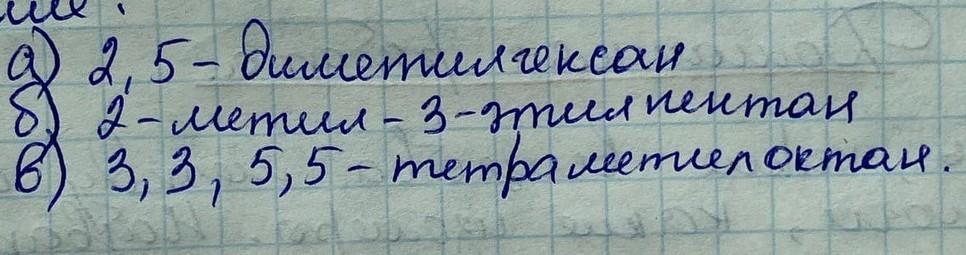 а) 2,5-диметилгексан
б) 2-метил-3-этилпентан
в) 3,3,5,5-тетраметилоктан.